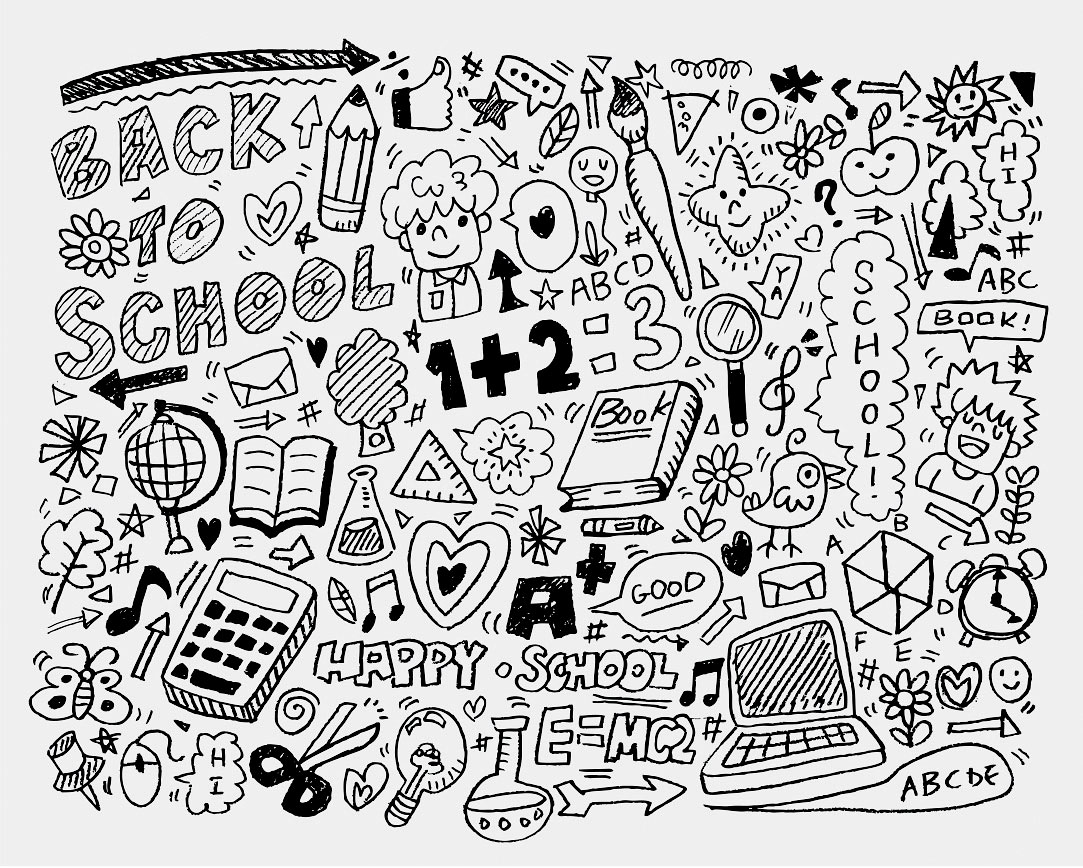 BACK
TO
SCHOOL
HI
ABCD
ABC
YA
BOOK!
SCHOOL!
1+2=3
Book
A+
GOOD
B
A
F
E
HAPPY · SCHOOL
E=MC2
HI
ABCDE